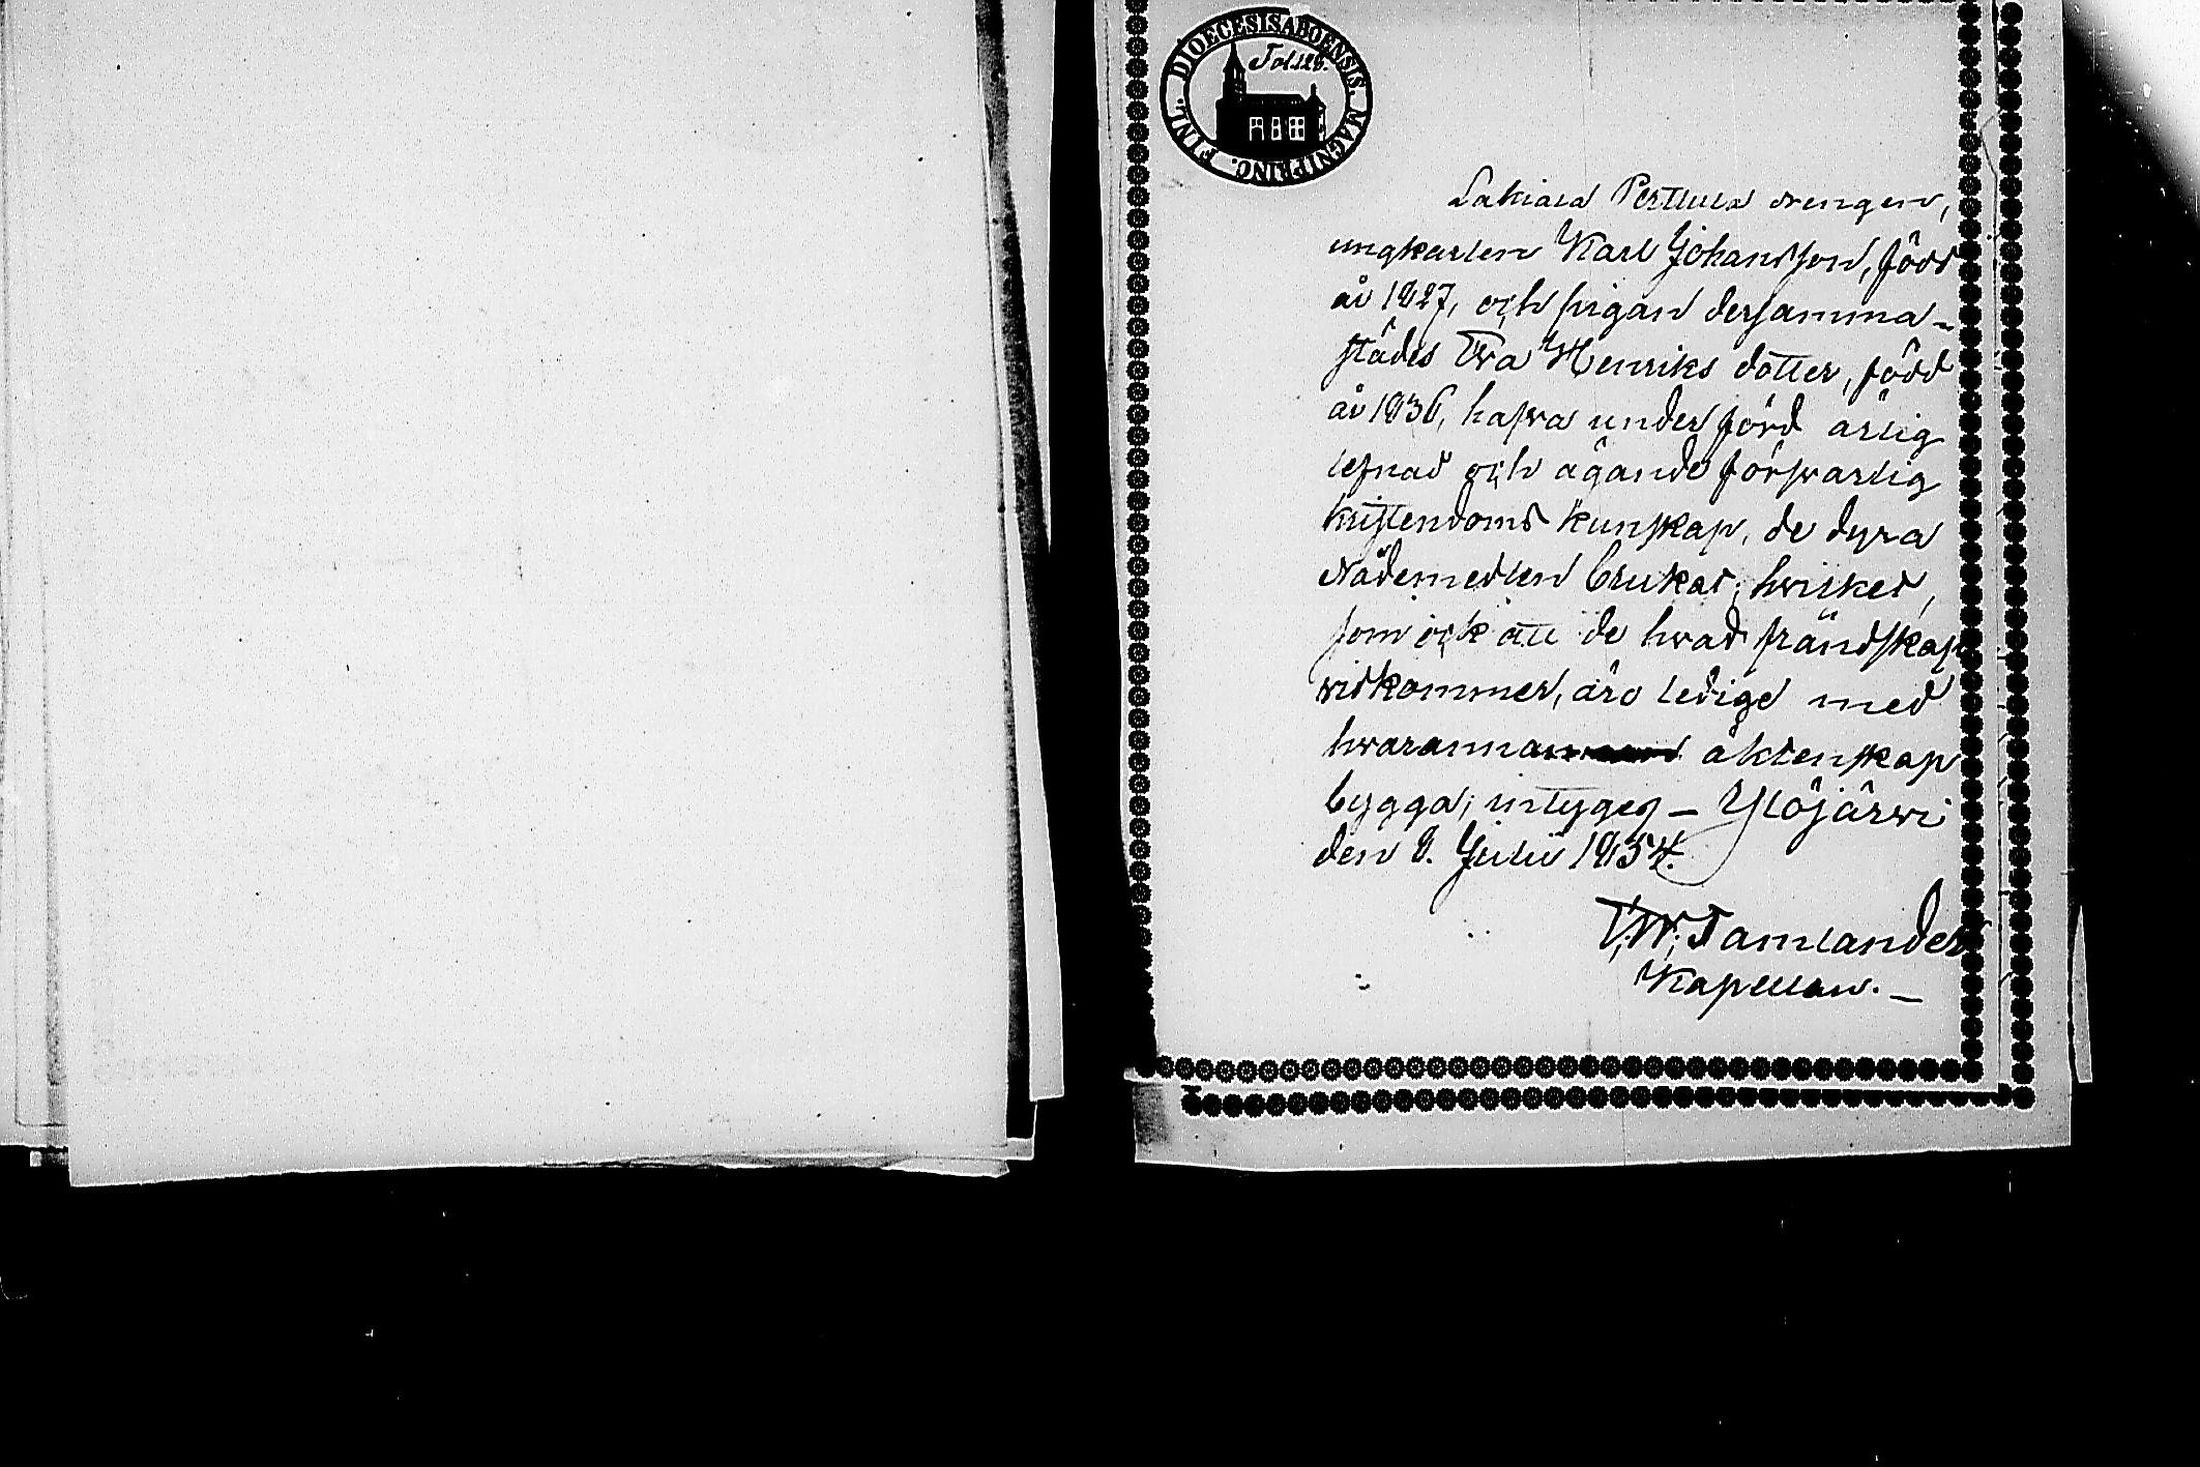 DIOECESIS ABOENSIS. MAGNI PRINC. FINL.
Fol. 128.
Lakiala Perttula drengen,
ungkarlen Karl Johansson, född
år 1827, och pigan dersamma-
städes Eva Henriks dotter, född
år 1836, hafva under förd ärlig
lefnad och ägande förfvarlig
kristendoms kunskap, de dyra
Nådemedlen brukat; hvilket,
som ock att de hvad frändskap
vidkommer, äro ledige med
hvarannan äktenskap
bygga; intygeg – Ylöjärvi
den 8. Julii 1854.
Tamlander
Kapellan. –